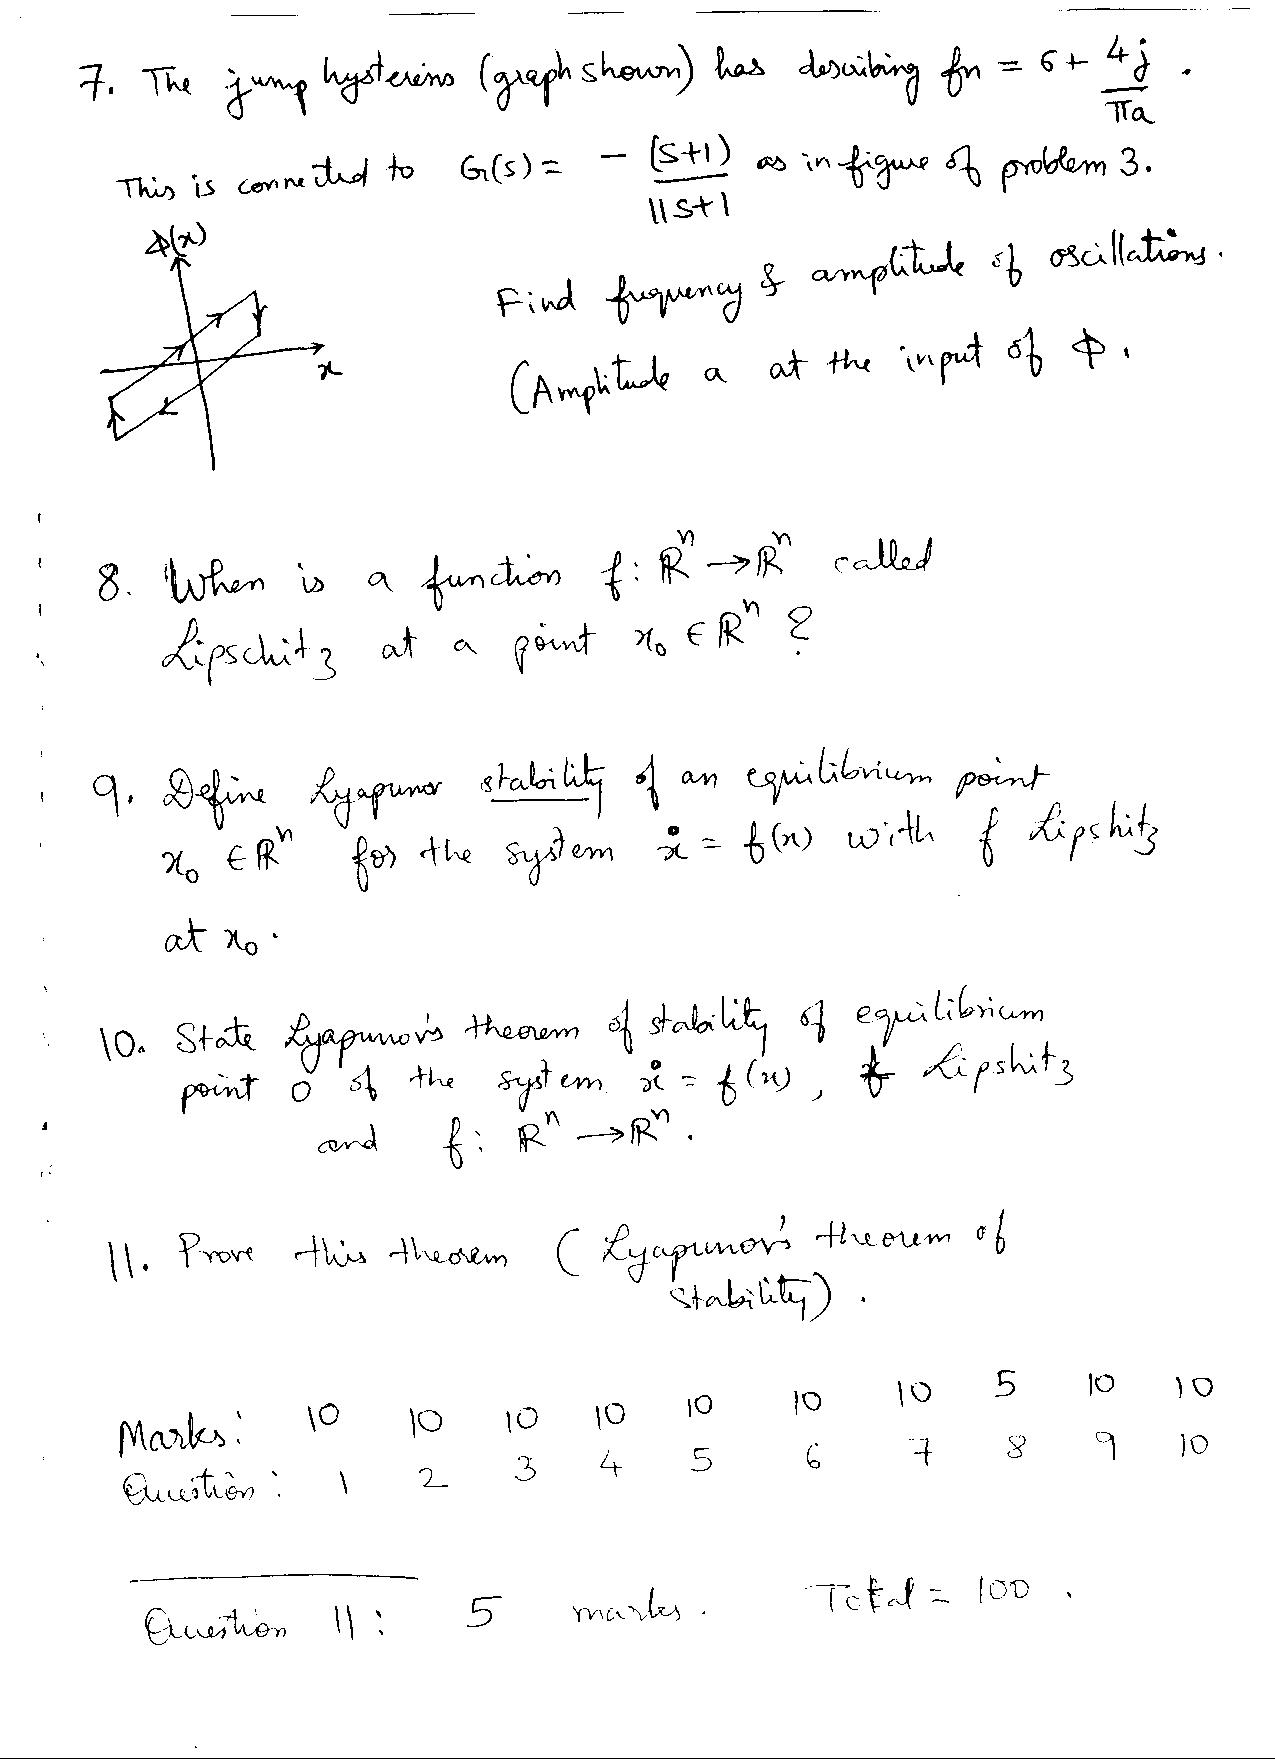 7. The jump hysteresis (graph shown) has describing fn = 6 + 4j/πa .
This is connected to G(s) = - (s+1)/11s+1 as in figure of problem 3.
Φ(x)
x
Find frequency & amplitude of oscillations.
(Amplitude a at the input of Φ.
8. When is a function f: ℝⁿ → ℝⁿ called
Lipschitz at a point x₀ ∈ ℝⁿ ?
9. Define Lyapunov stability of an equilibrium point
x₀ ∈ ℝⁿ for the system ẋ = f(x) with f Lipshitz
at x₀.
10. State Lyapunov's theorem of stability of equilibrium
point 0 of the system ẋ = f(x), f Lipshitz
and f: ℝⁿ → ℝⁿ.
11. Prove this theorem (Lyapunov's theorem of
stability).
Marks: 10 10 10 10 10 10 10 5 10 10
Question: 1 2 3 4 5 6 7 8 9 10
Question 11: 5 marks. Total = 100.